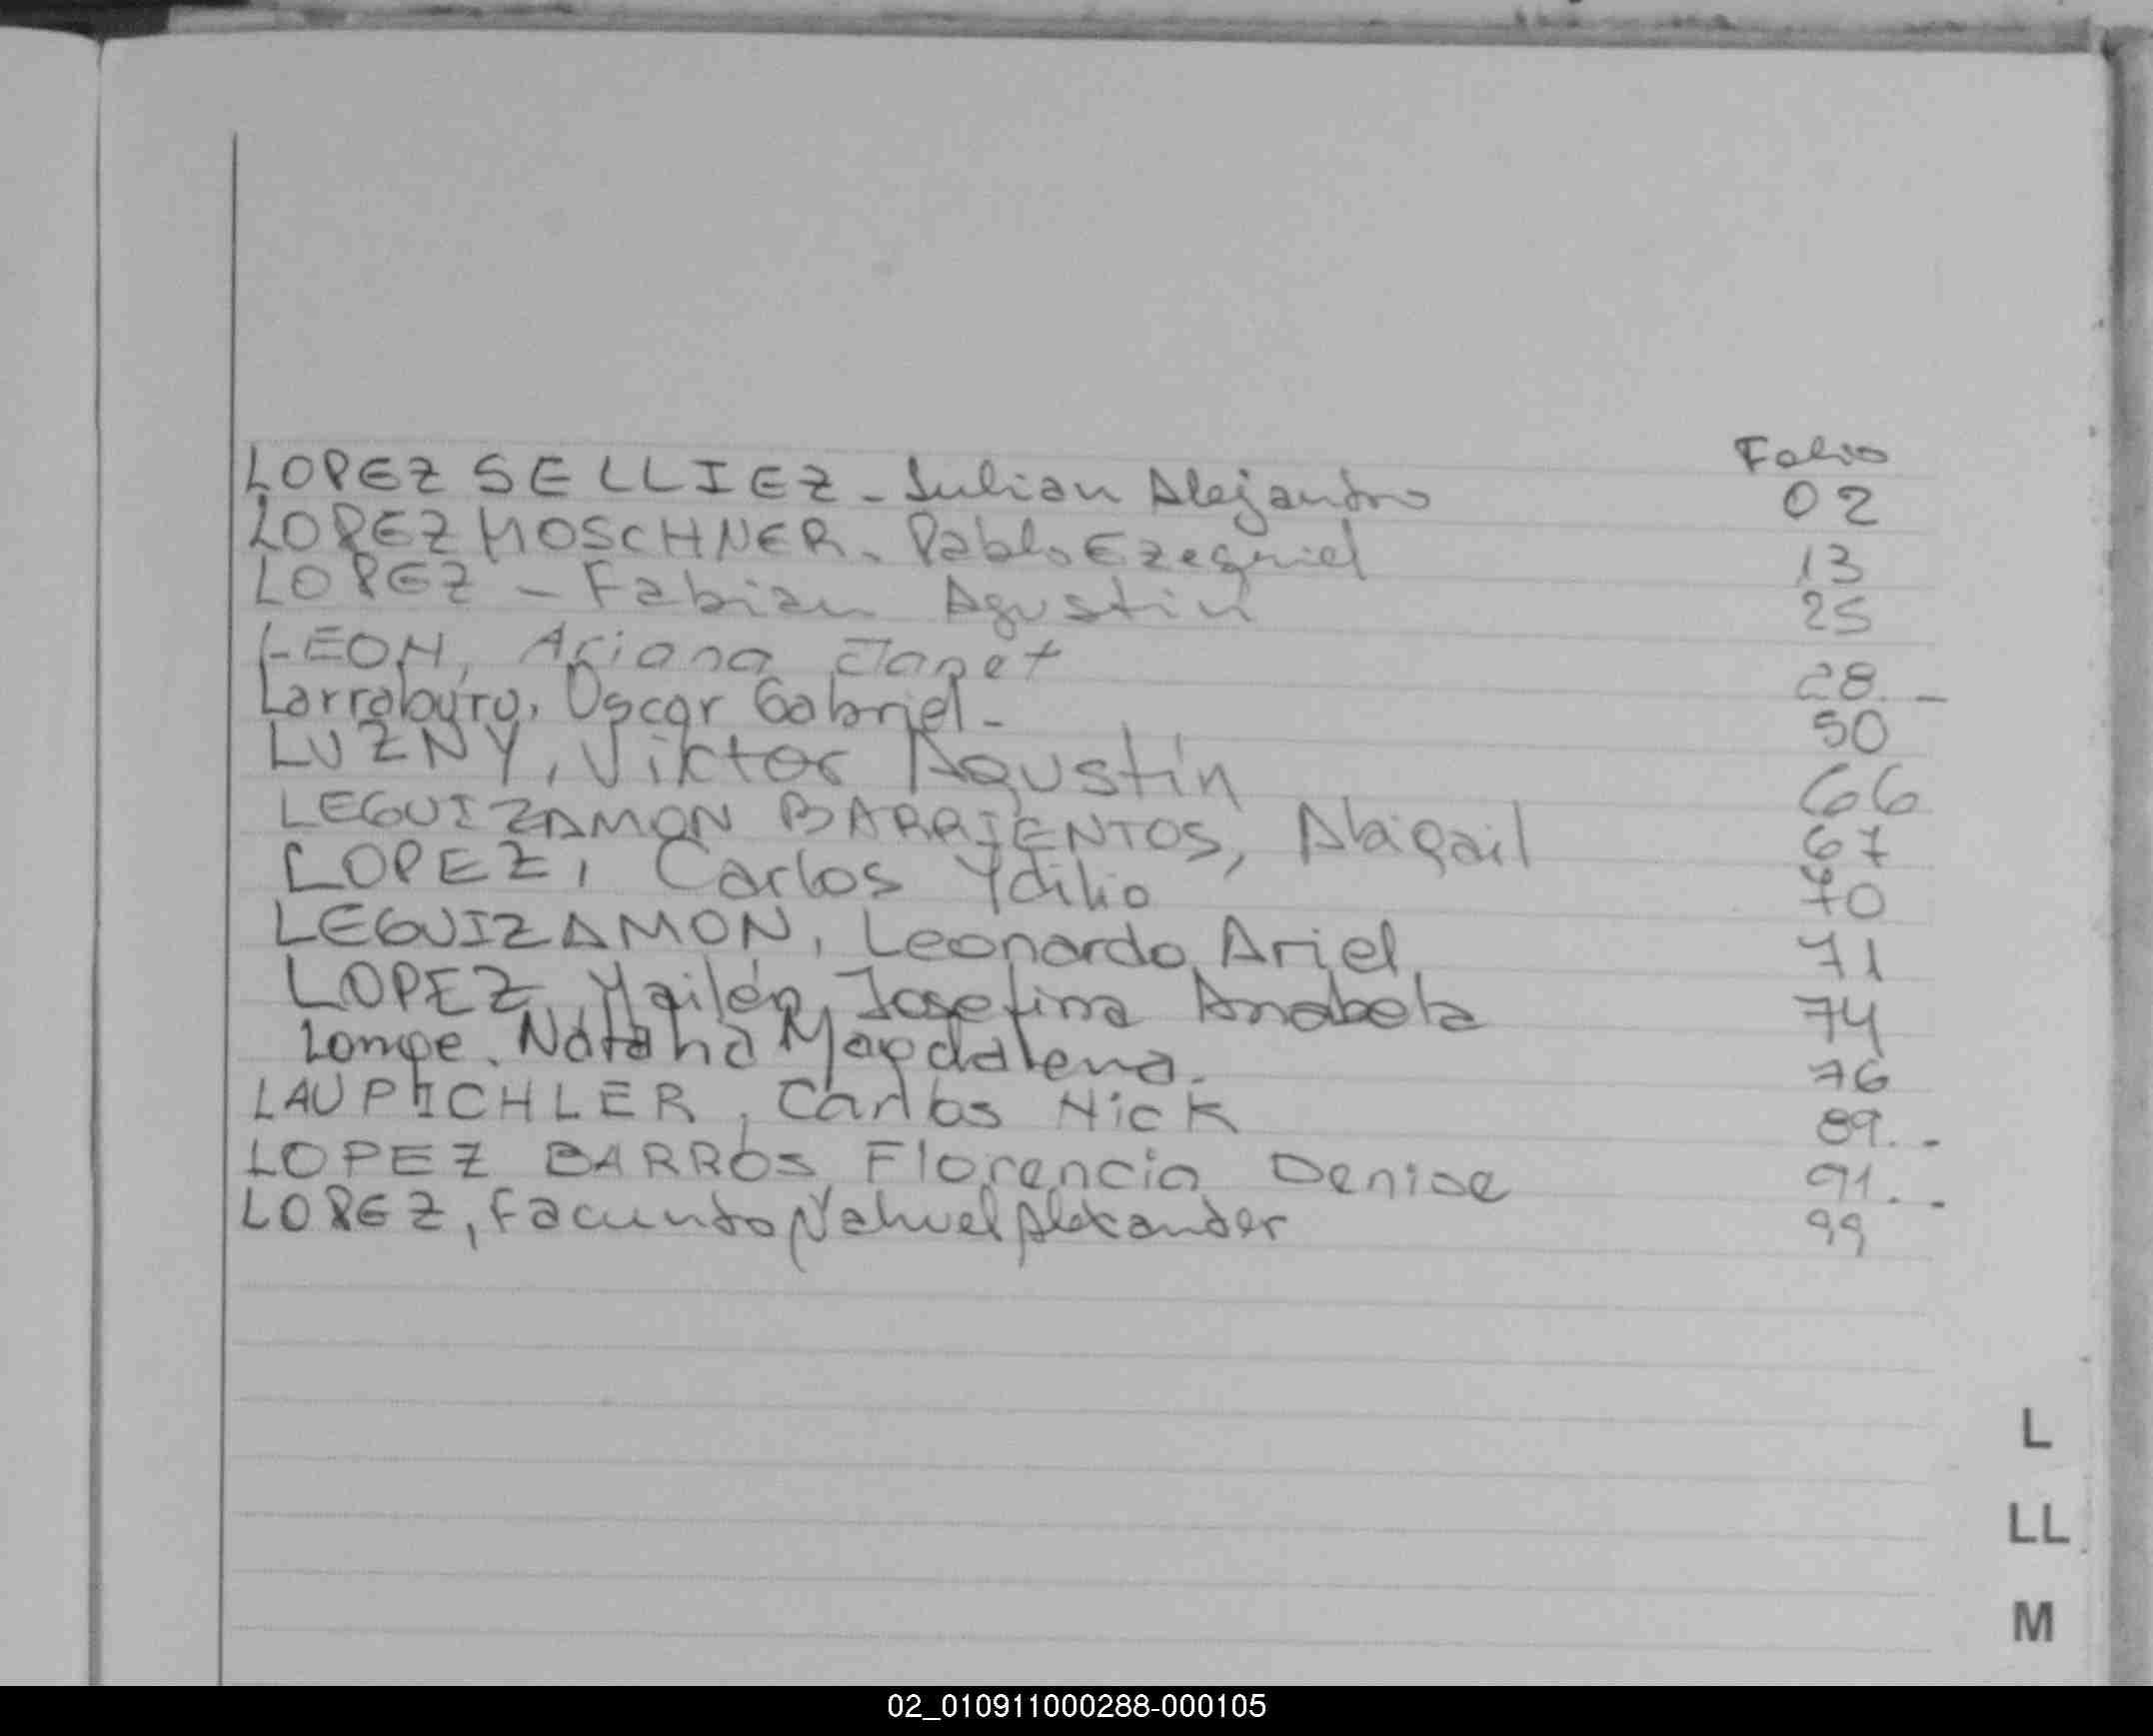 Folio
LOPEZ SELLIEZ - Julian Alejandro 02
LOPEZ MOSCHNER - Pablo Ezequiel 13
LOPEZ - Fabian Agustin 25
LEON, Ariana Janet 28.-
Larraburo, Oscar Gabriel - 50
LUZNY, Viktor Agustín 66
LEGUIZAMON BARRIENTOS, Abigail 67
LOPEZ, Carlos Ydilio 70
LEGUIZAMON, Leonardo Ariel 71
LOPEZ, Yailén Josefina Anabela 74
Lompe. Natalia Magdalena. 76
LAUPICHLER, Carlos Nick 89.-
LOPEZ BARROS Florencia Denise 91.-
LOPEZ, Facundo Nahuel Alexander 99
L
LL
M
02_010911000288-000105